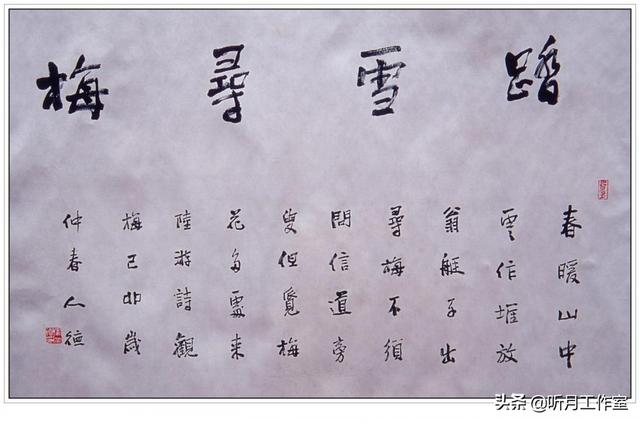 踏雪尋梅
春暖山中
雲作堆放
翁艇子出
尋梅不須
問信道旁
叟但覓梅
花多處來
陸游詩觀
梅己卯歲
仲春人德
头条 @听月工作室